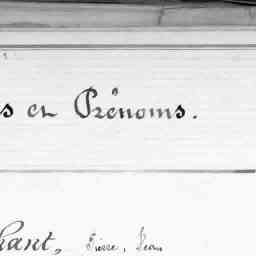 s et Prénoms.
hant, Pierre, Jean